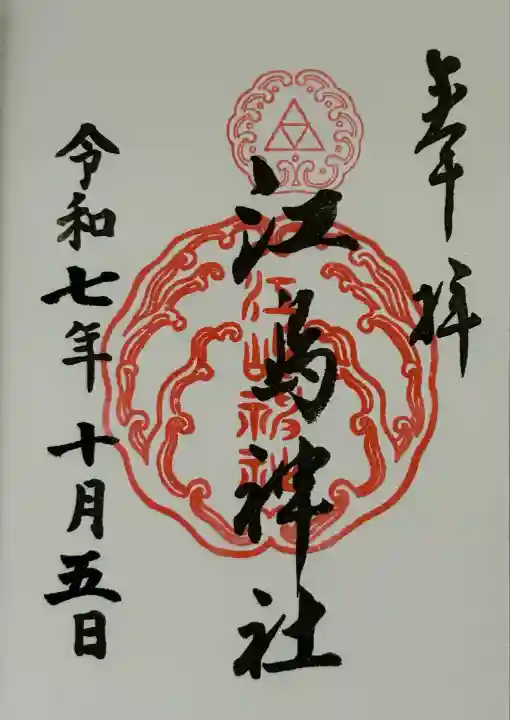 奉拝
江島神社
江嶋神社
令和七年十月五日